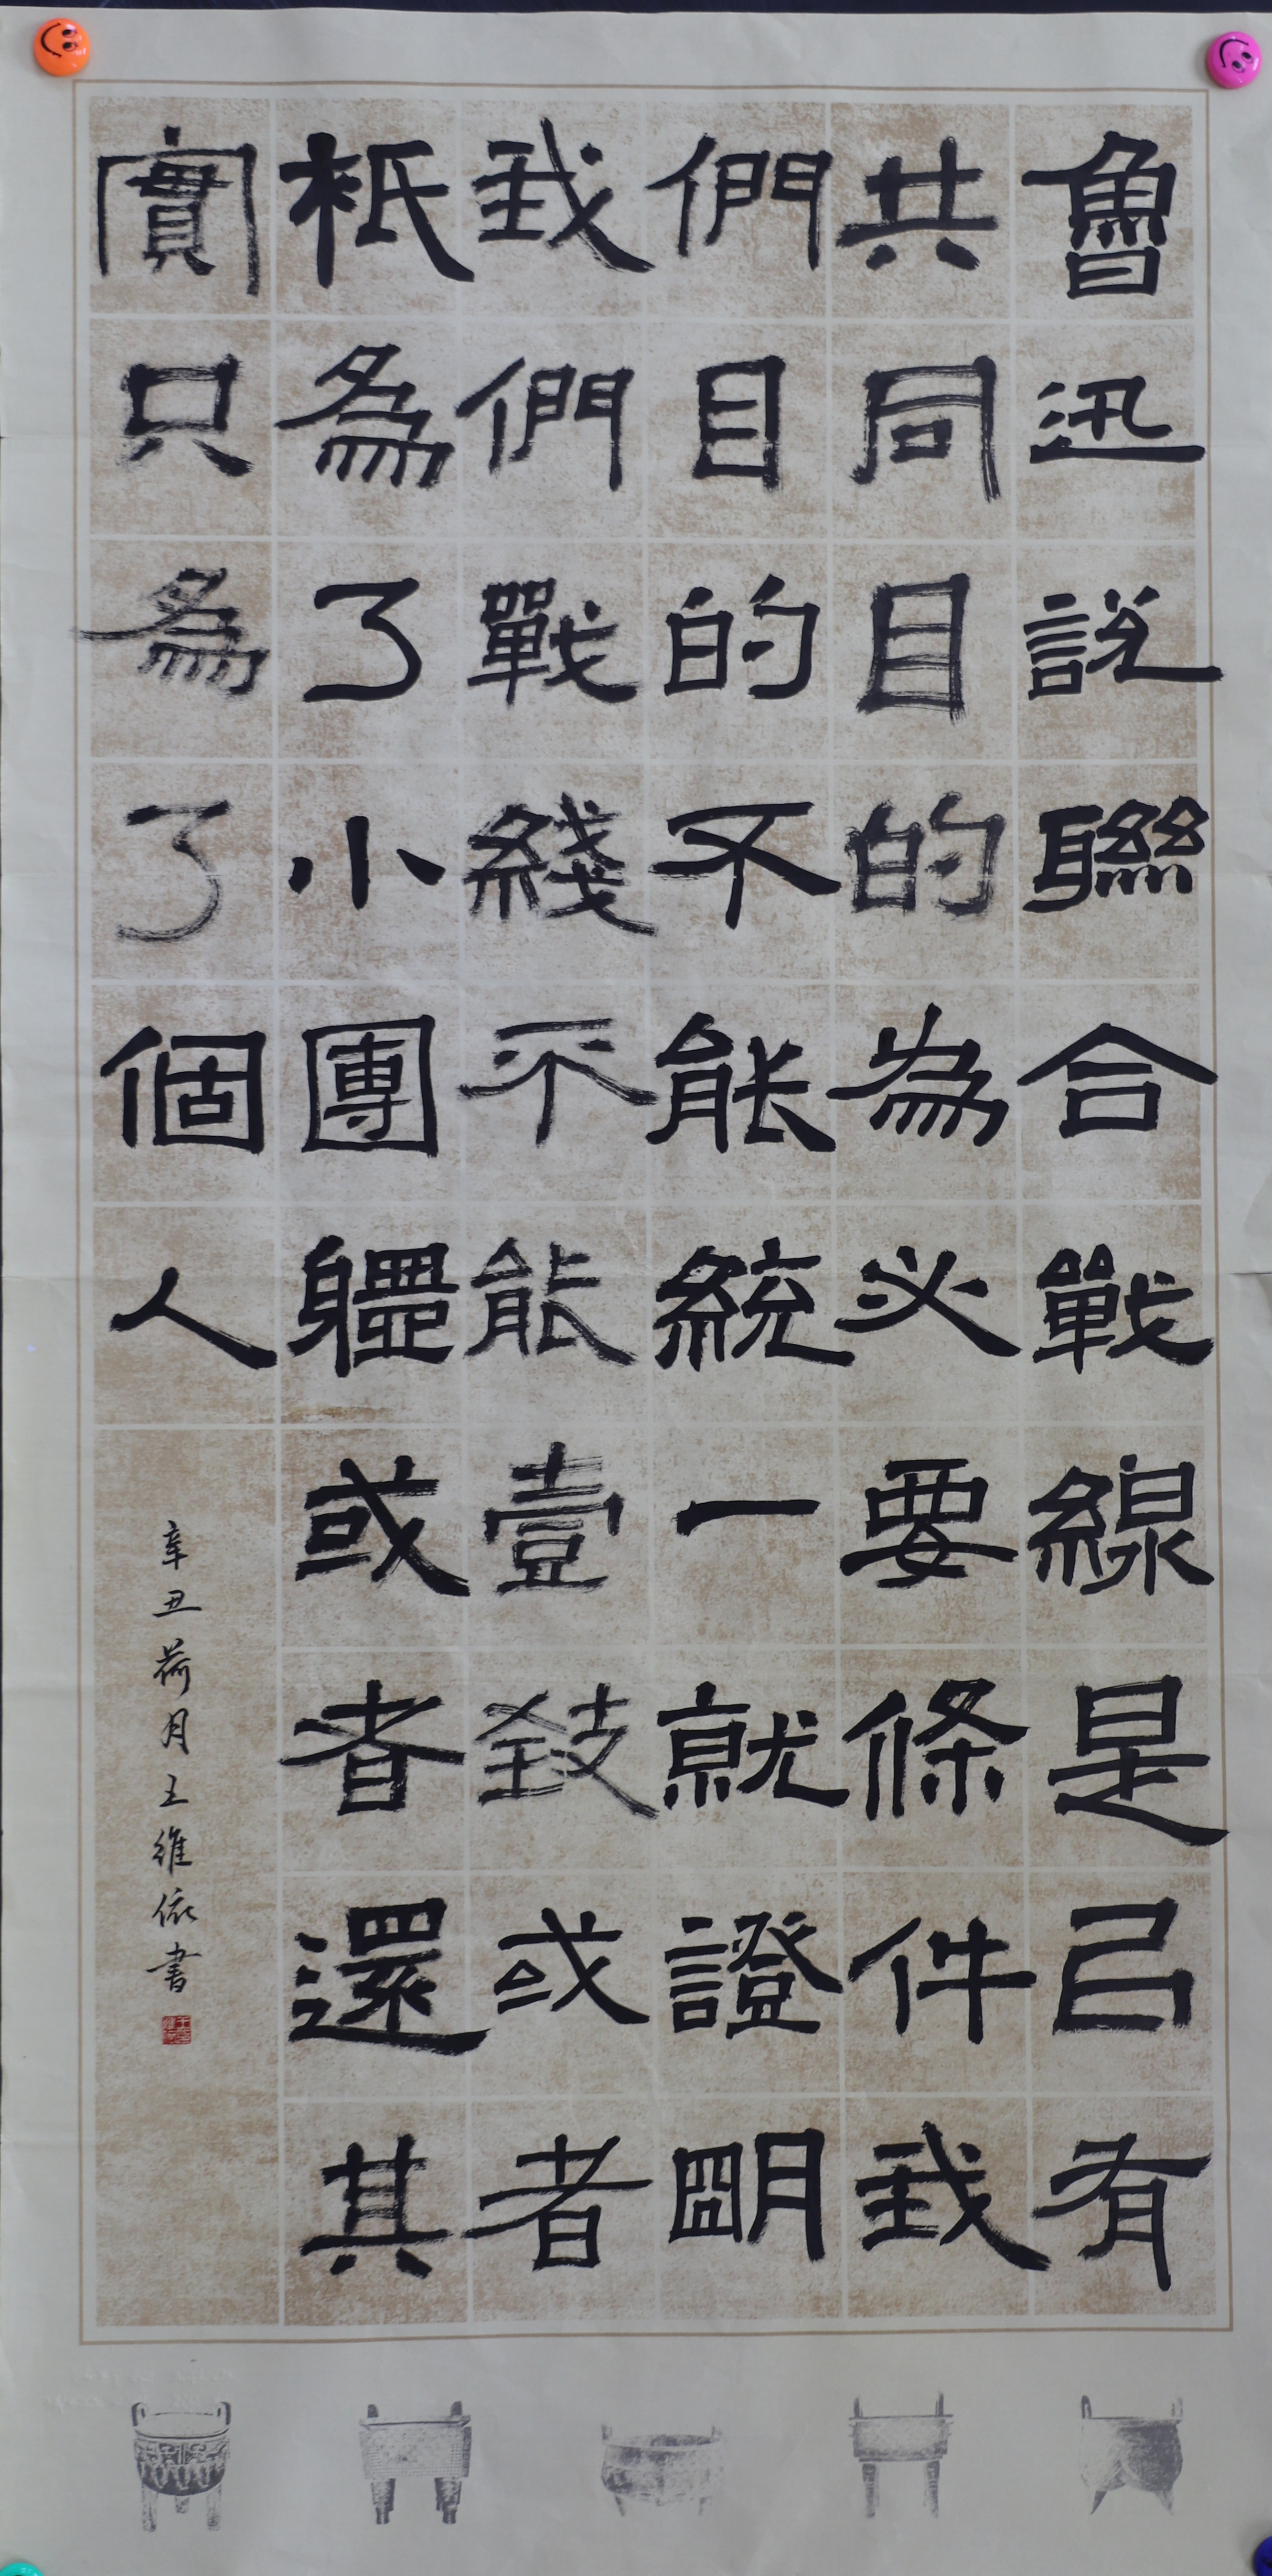 魯迅説聯合戰線是以有
共同目的為必要條件我
們目的不能統一就證明
我們戰綫不能壹致或者
衹為了小團軆或者還其
實只為了個人
辛丑荷月王維依書